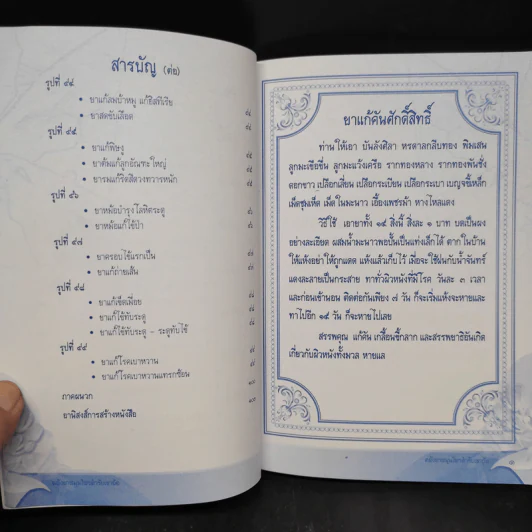 สารบัญ (ต่อ)
รูปที่ ๔๔
• ยาแก้ลมบ้าหมู แก้ฮีสทีเรีย
• ยาสตรีขับเลือด
รูปที่ ๔๕
• ยาแก้พิษงู
• ยาต้มแก้ลูกอัณฑะใหญ่
• ยารมแก้ริดสีดวงทวารหนัก
รูปที่ ๔๖
• ยาหม้อบำรุงโลหิตระดู
• ยาหม้อแก้ไข้ป่า
รูปที่ ๔๗
• ยาครอบไข้แรกเป็น
• ยาแก้ถ่ายเส้น
รูปที่ ๔๘
• ยาแก้เข็ดเมื่อย
• ยาแก้ไข้ทับระดู
• ยาแก้ไข้ทับระดู - ระดูทับไข้
รูปที่ ๔๙
• ยาแก้โรคเบาหวาน
• ยาแก้โรคเบาหวานแทรกซ้อน
ภาคผนวก
อานิสงส์การสร้างหนังสือ
ยาแก้คันศักดิ์สิทธิ์
ท่านให้เอา บันลังศิลา หรดาลกลีบทอง พิมเสน
ลูกมะเขือขื่น ลูกมะแว้งเครือ รากทองหลาง รากทองพันชั่ง
ดอกขาว เปลือกเลี่ยน เปลือกระเบียน เปลือกระเบา เบญจขี้เหล็ก
เม็ดชุมเห็ด เม็ดในมะนาว เอื้องเพชรม้า หางไหลแดง
วิธีใช้ เอายาทั้ง ๑๔ สิ่งนี้ สิ่งละ ๑ บาท บดเป็นผง
อย่างละเอียด ผสมน้ำมะนาวพอปั้นเป็นแท่งเล็กได้ ตากในบ้าน
ให้แห้งอย่าให้ถูกแดด แห้งแล้วเก็บไว้ เมื่อจะใช้ฝนกับน้ำจันทร์
แดงละลายเป็นกระสาย ทาทั่วผิวหนังที่มีโรค วันละ ๓ เวลา
และก่อนเข้านอน ติดต่อกันเพียง ๗ วัน ก็จะเริ่มแห้งจะหายและ
ทาไปอีก ๑๔ วัน ก็จะหายไปเลย
สรรพคุณ แก้คัน เกลื้อนขี้กลาก และสรรพยาธิอันเกิด
เกี่ยวกับผิวหนังทั้งมวล หายแล